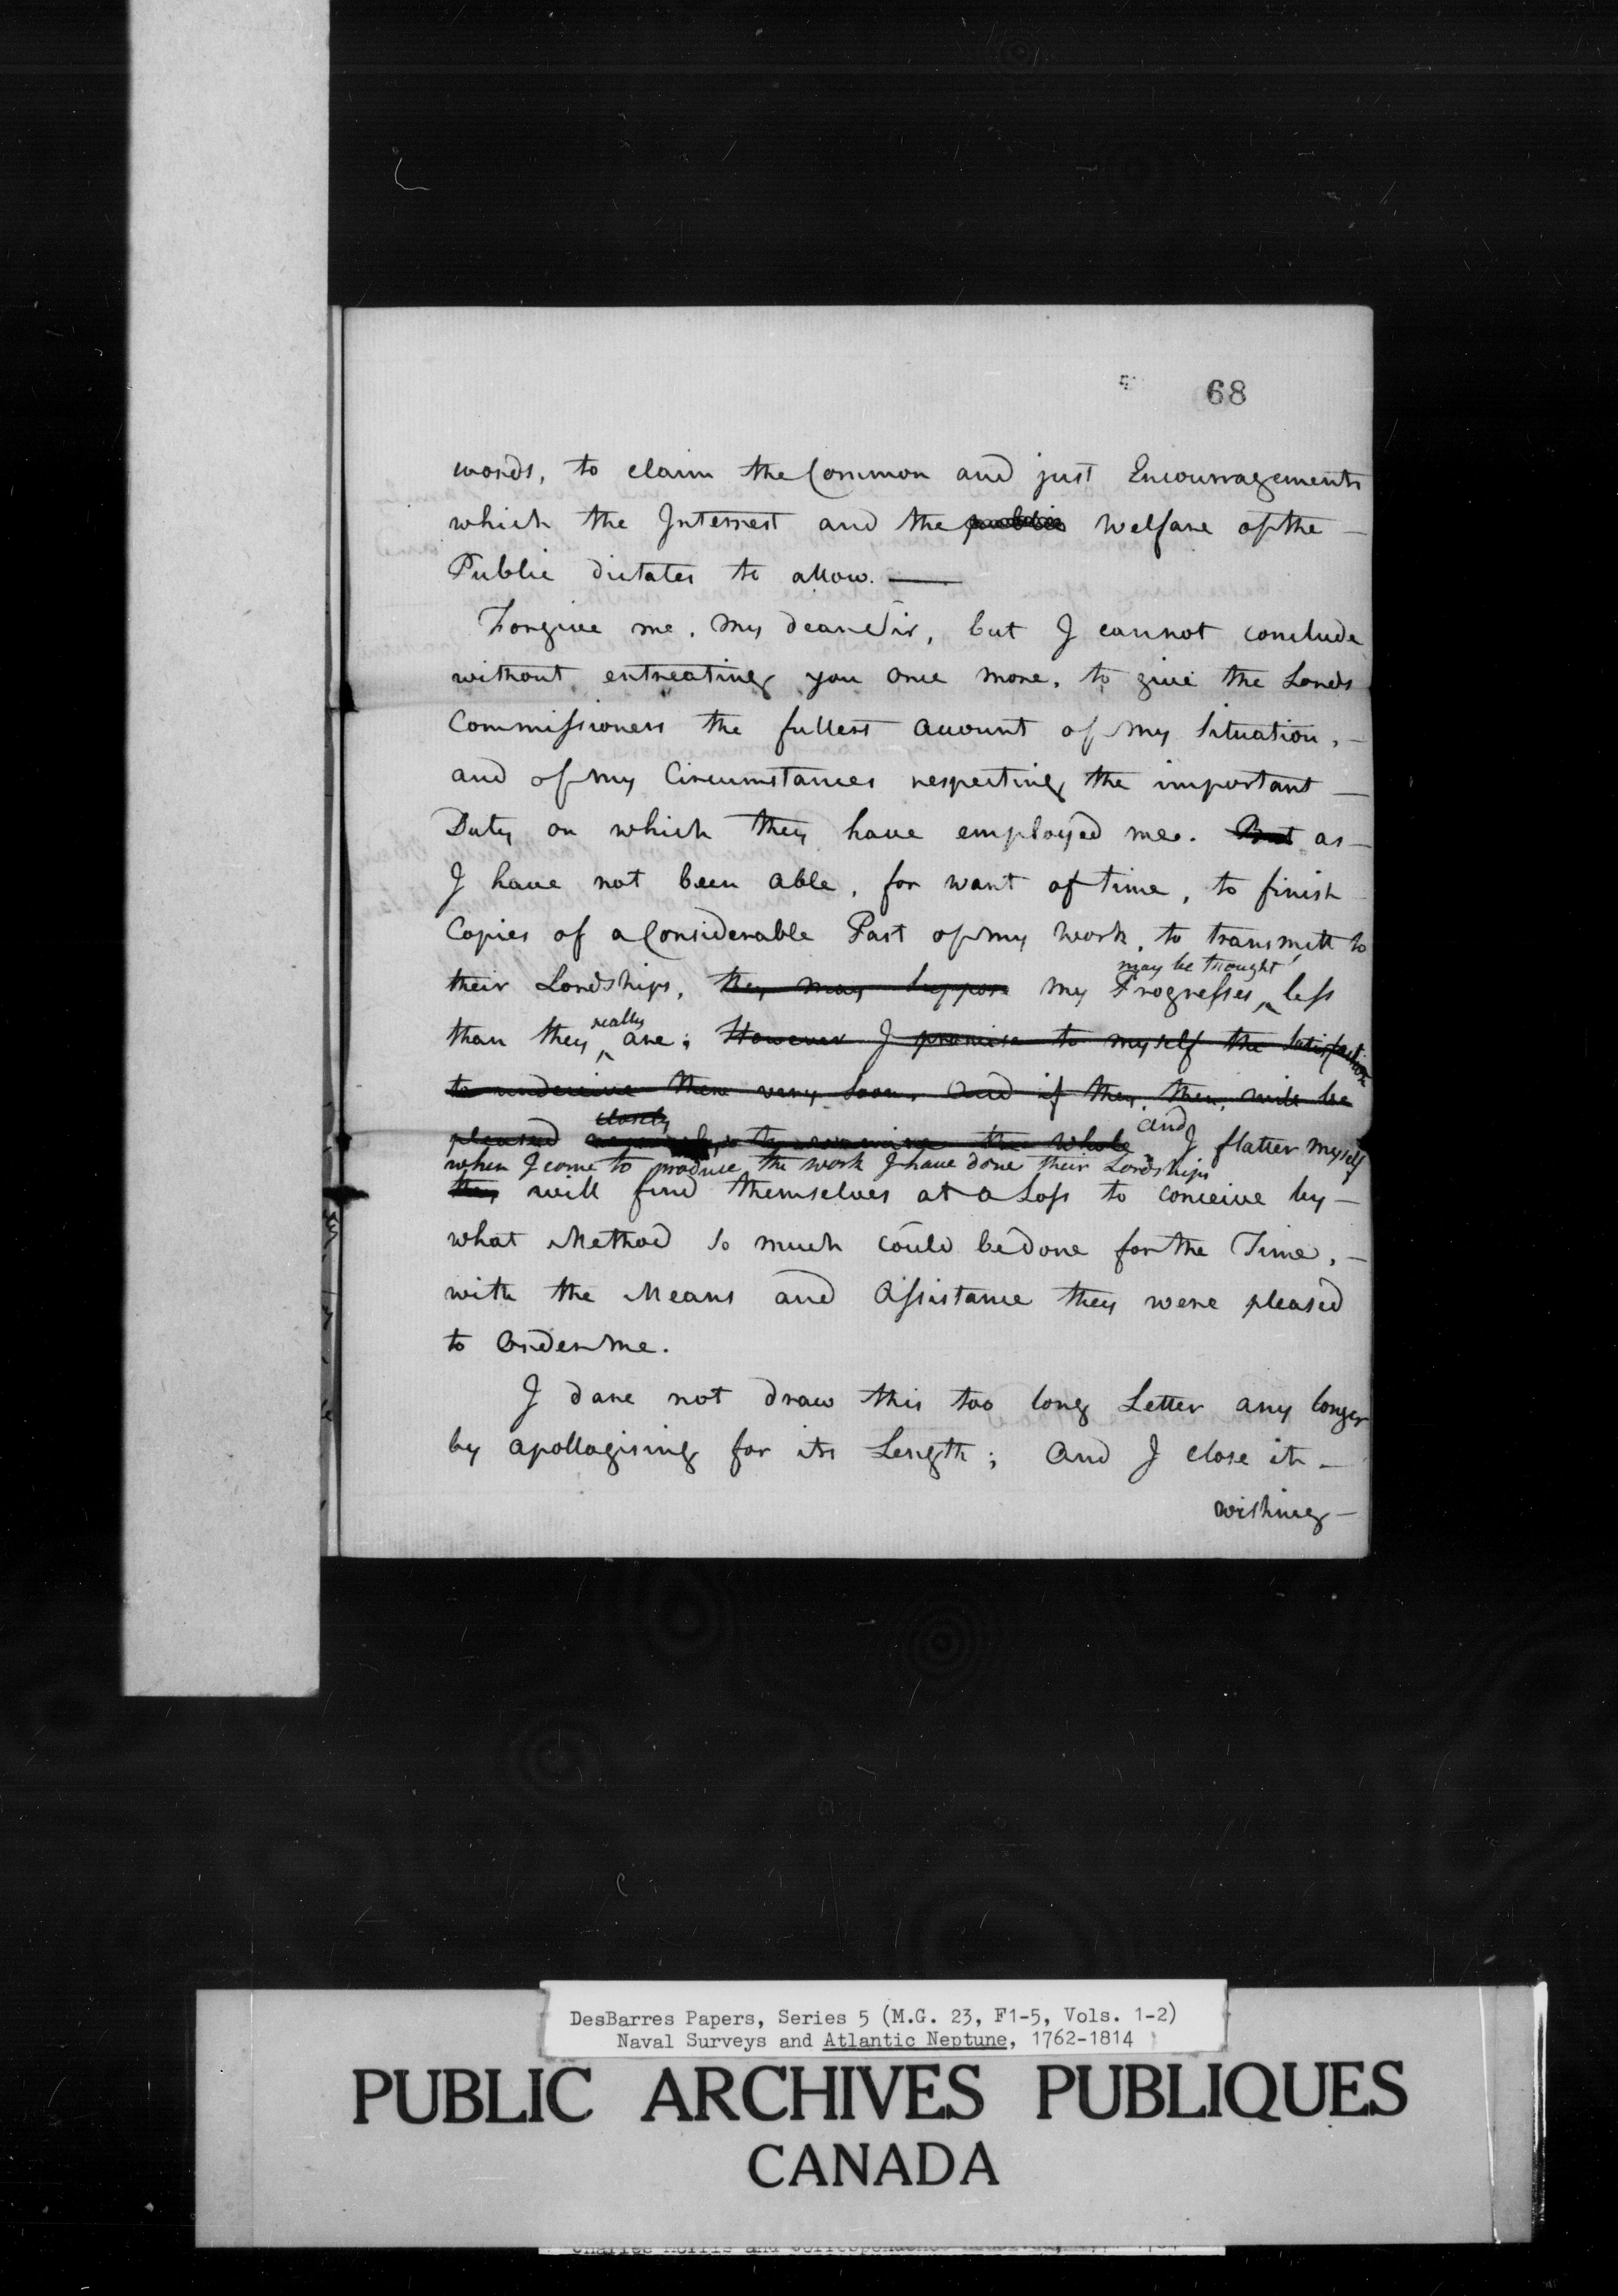 68
words, to claim the Common and just Encourragements
which the Interrest and the public Welfare of the —
Public dictates to allow. —
Forgive me, my dear Sir, but I cannot conclude
without entreating you once more, to give the Lords
Commissioners the fullest account of my Situation, —
and of my Circumstances respecting the important —
Duty on which they have employed me. But as —
I have not been able, for want of time, to finish
Copies of a Considerable Part of my Work, to transmitt to
may be thought
their Lordships, they may suppose my Progresses ‸ less
really
than they ‸ are; However I promise to myself the Satisfaction
to undeceive them very soon. And if they, then, will be
closely
and
pleased to examine the whole I flatter myself
when I come to produce the work I have done their Lordships
they will find themselves at a Loss to conceive by —
what Method so much could be done for the Time, —
with the Means and Assistance they were pleased
to Order me.
I dare not draw this too long Letter any longer
by apollogising for its Length; And I close it —
wishing —
DesBarres Papers, Series 5 (M.G. 23, F1-5, Vols. 1-2)
Naval Surveys and Atlantic Neptune, 1762-1814
PUBLIC ARCHIVES PUBLIQUES
CANADA